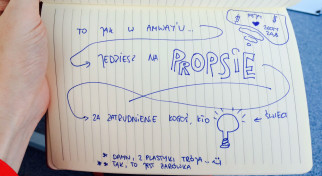 TO JAK W AMWAY'U...
JEDZIESZ NA PROPSIE
ZA ZATRUDNIENIE KOGOŚ, KTO
ŚWIECI
* DAMN, Z PLASTYKI TRÓJA...
** TAK, TO JEST ŻARÓWKA